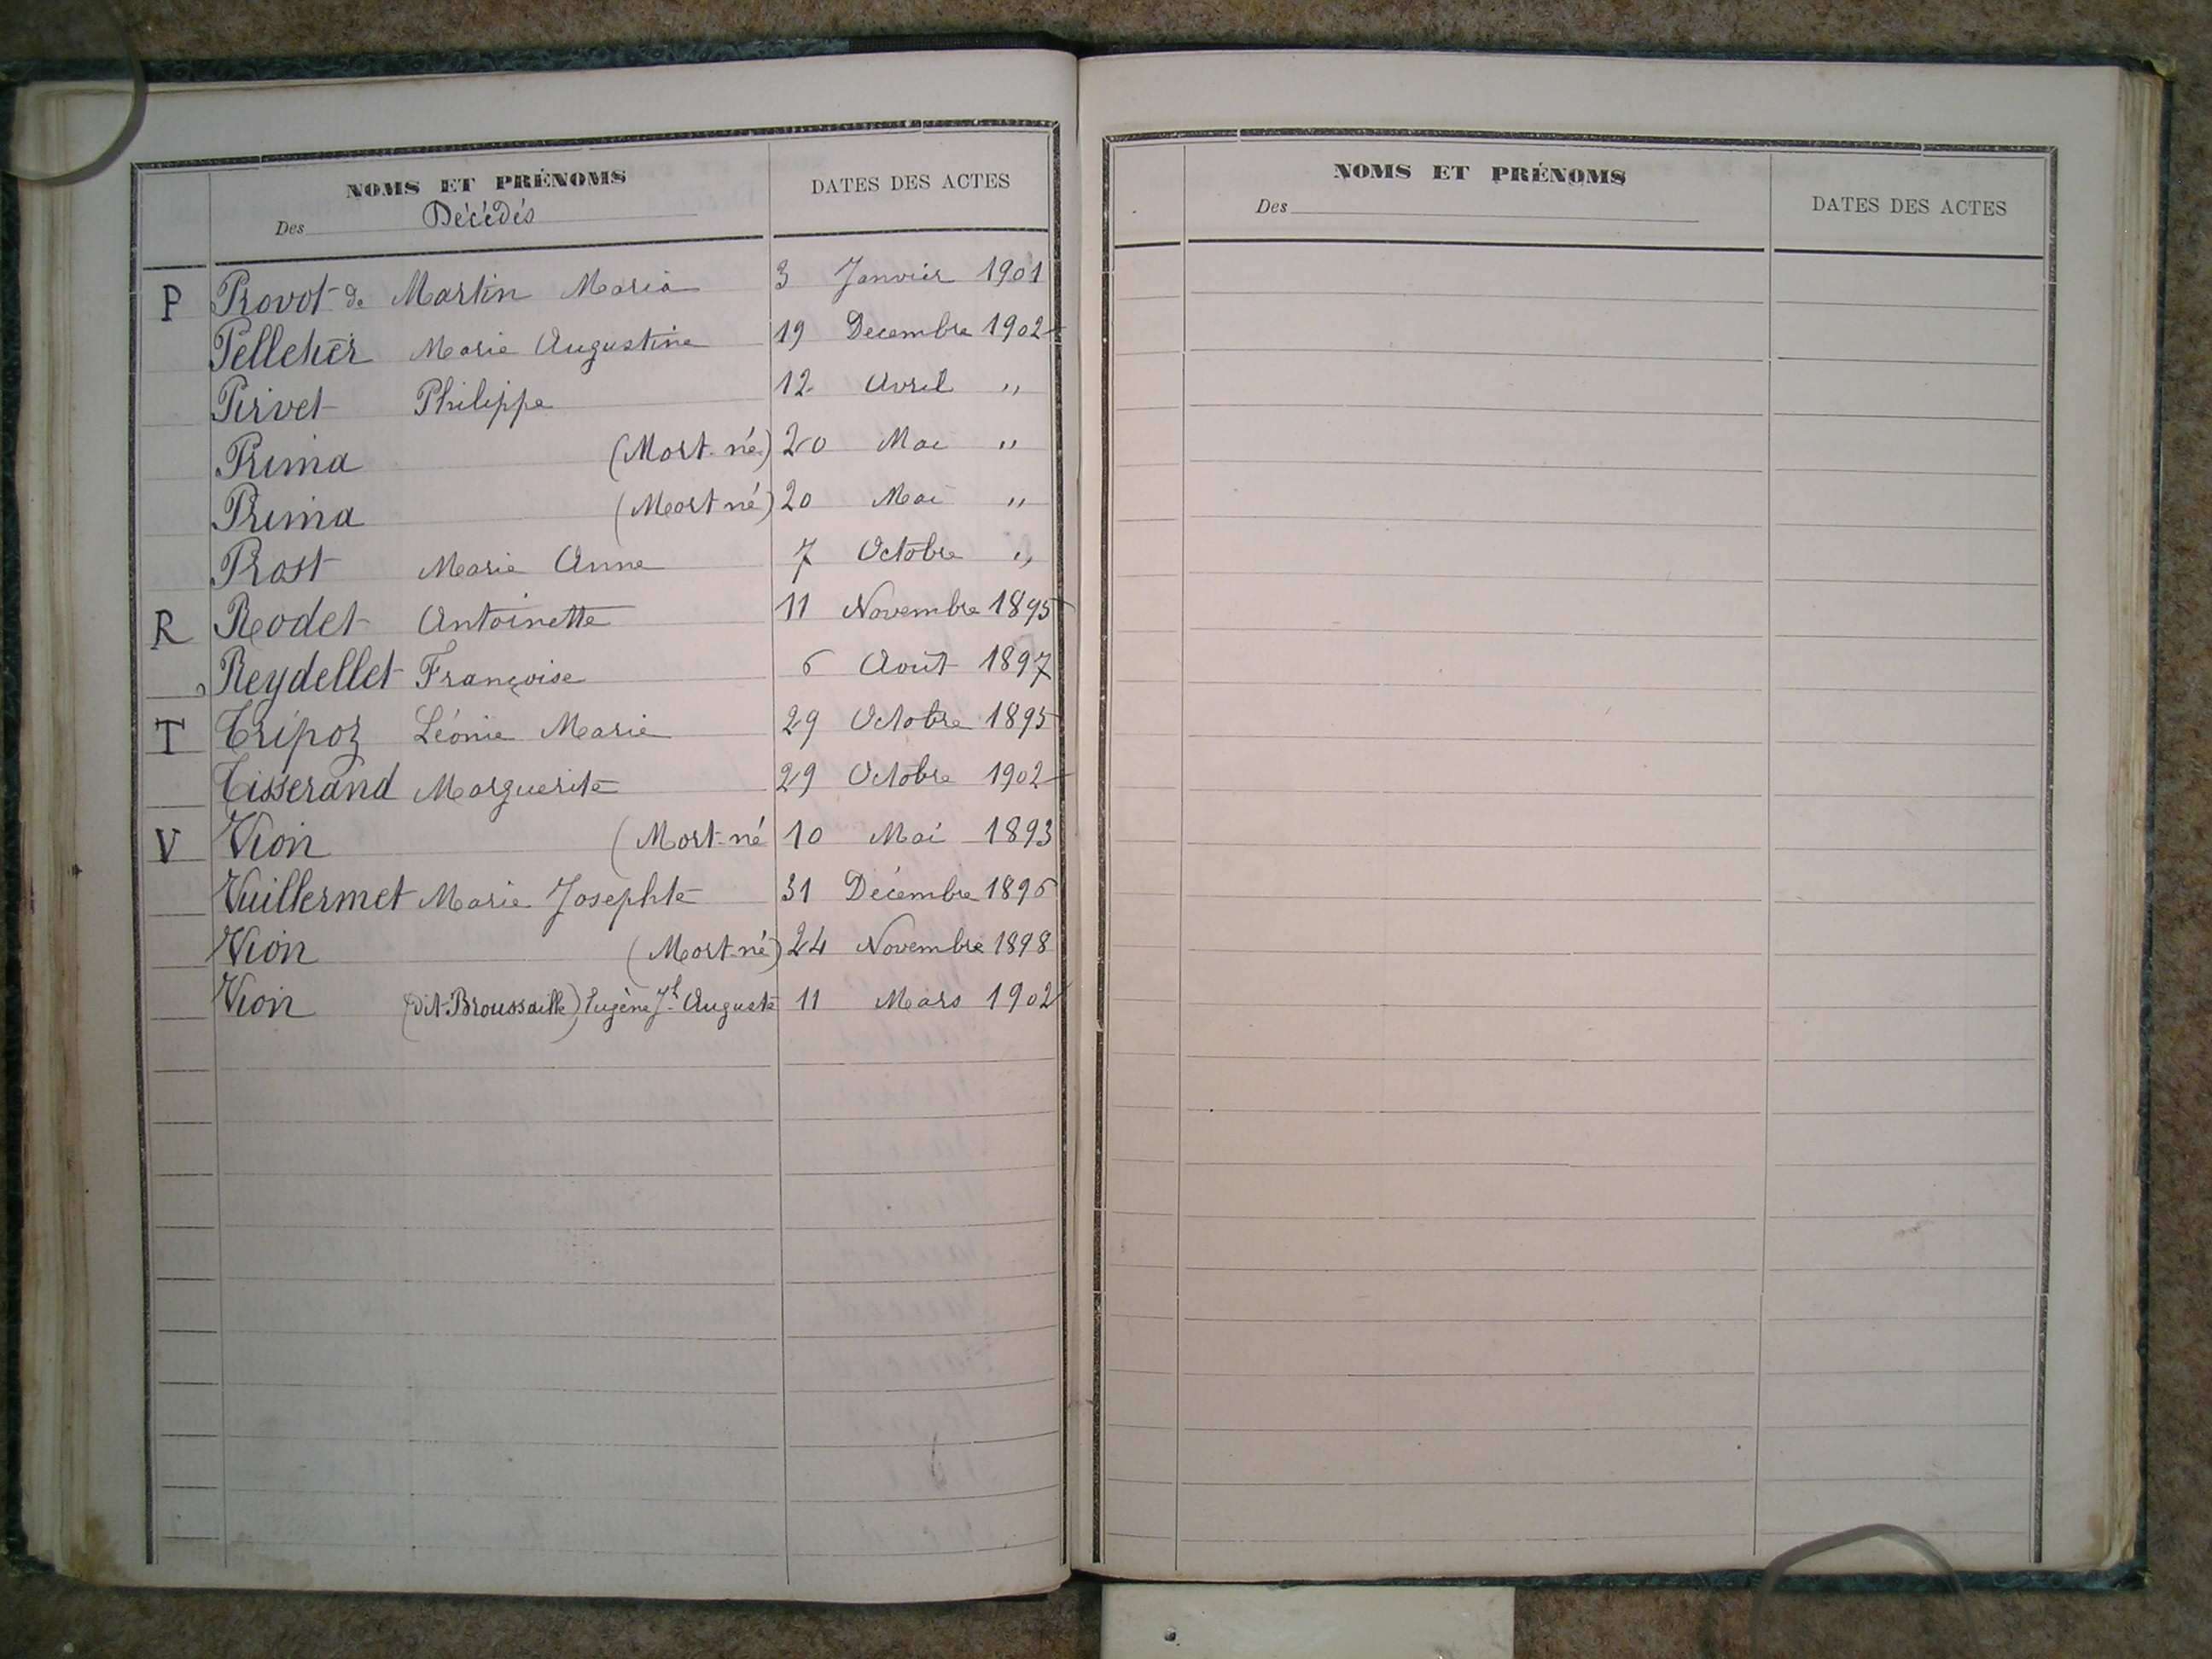 NOMS ET PRÉNOMS
Des Décédés
DATES DES ACTES
P Provot de Martin Maria 3 Janvier 1901
Pelletier Marie Augustine 19 Decembre 1902
Pirvet Philippe 12 Avril "
Prima (Mort-né) 20 Mai "
Prima (Mort né) 20 Mai "
Prost Marie Anne 7 Octobre "
R Rodet Antoinette 11 Novembre 1895
Reydellet Françoise 6 Août 1897
T Tripoz Léonie Marie 29 Octobre 1895
Tisserand Marguerite 29 Octobre 1902
V Vion (Mort-né 10 Mai 1893
Vuillermet Marie Josephte 31 Décembre 1896
Vion (Mort-né) 24 Novembre 1898
Vion (dit Broussaille) Eugène Jh Auguste 11 Mars 1902
NOMS ET PRÉNOMS
Des
DATES DES ACTES